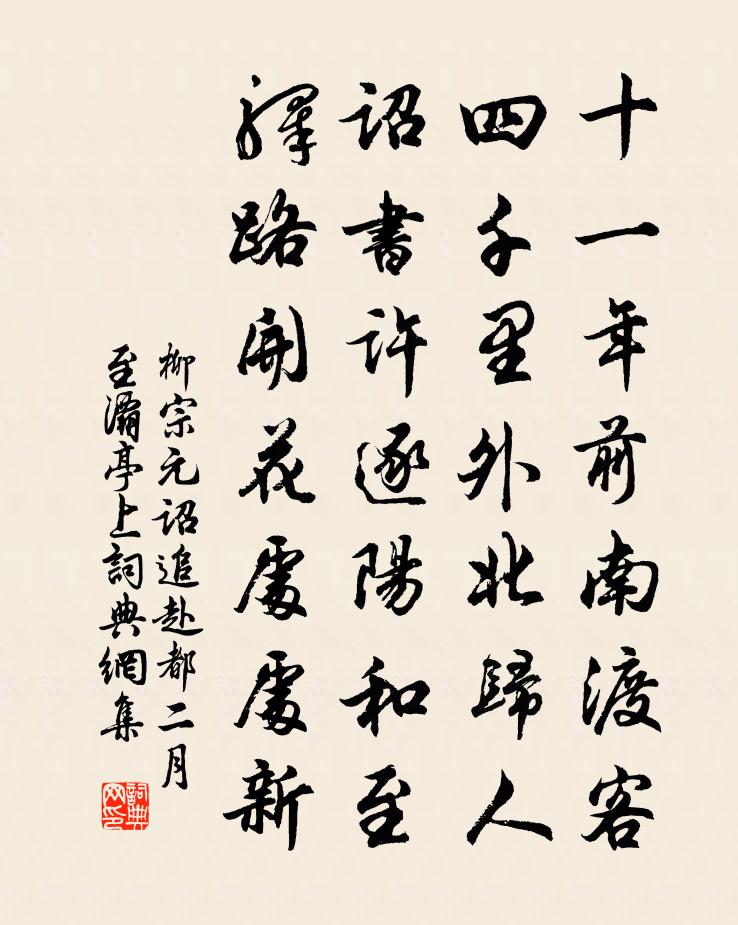 十一年前南渡客
四千里外北歸人
詔書許逐陽和至
驛路開花處處新
柳宗元詔追赴都二月
至灞亭上詞典網集
詞典
网印